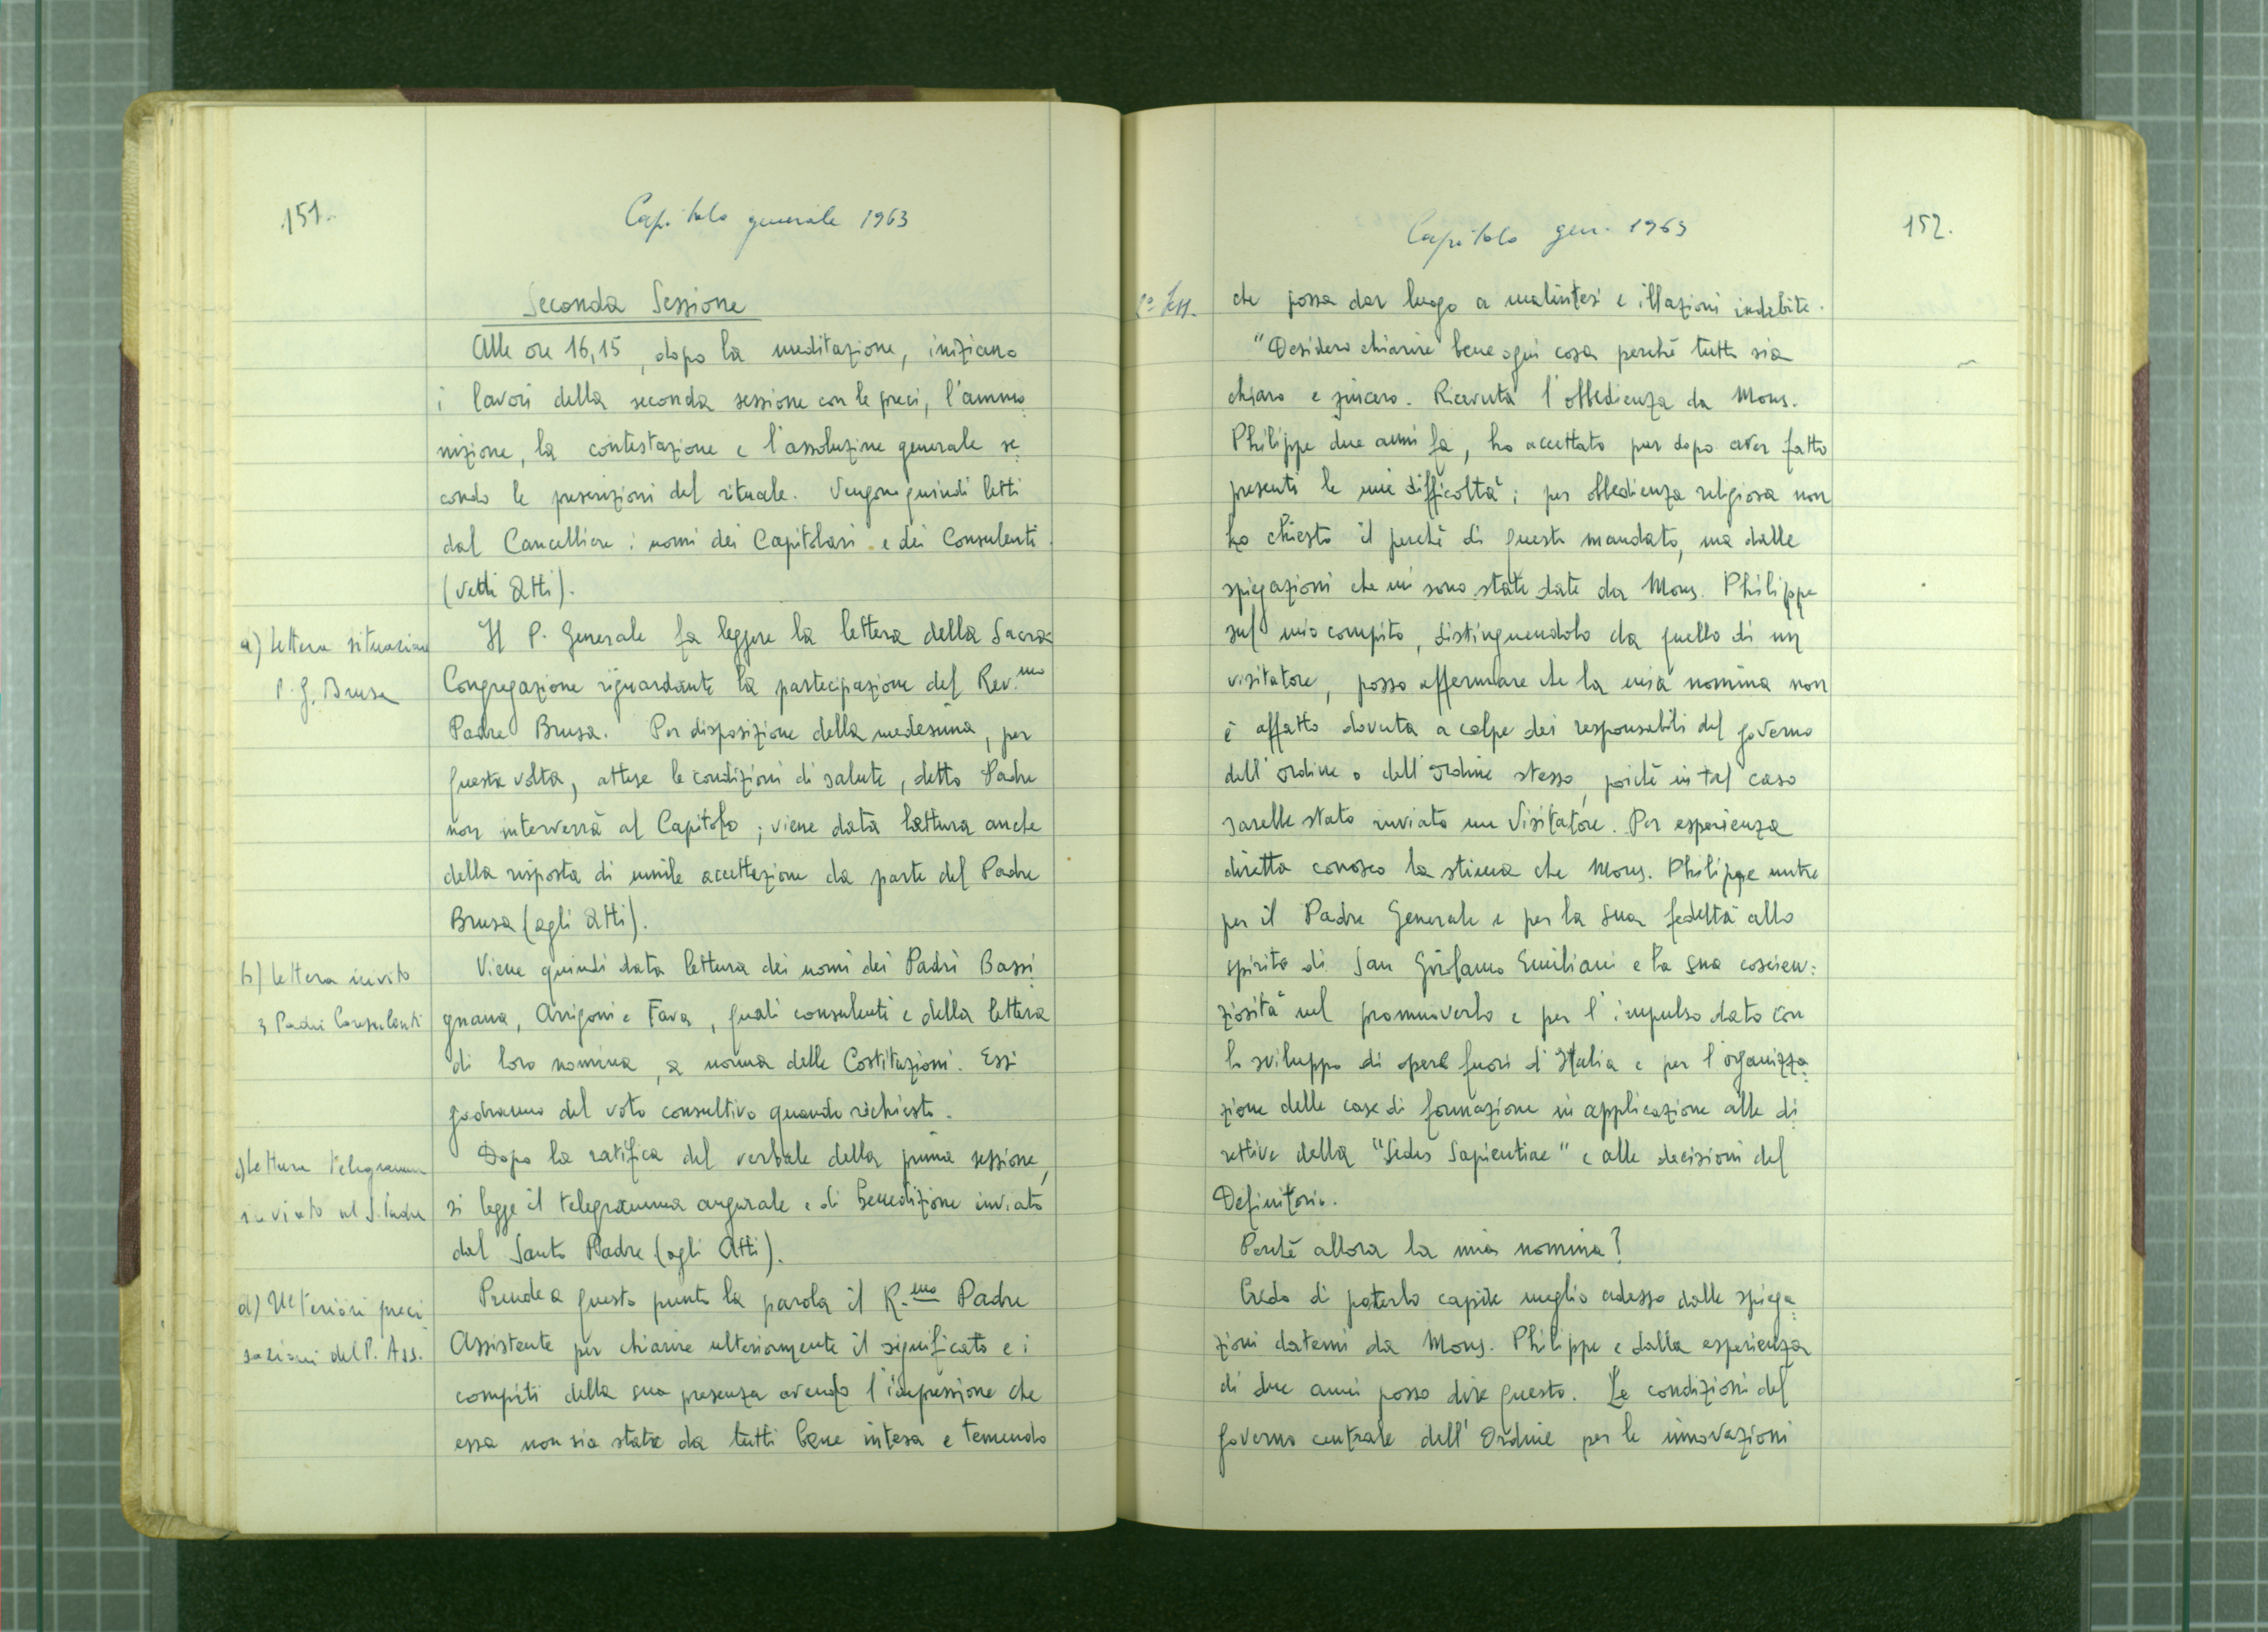 151.
Capitolo generale 1963
Seconda Sessione
Alle ore 16,15, dopo la meditazione, iniziano
i lavori della seconda sessione con le preci, l'ammo
nizione, la contestazione e l'assoluzione generale se
condo le prescrizioni del rituale. Vengono quindi letti
dal Cancelliere i nomi dei Capitolari e dei Consulenti
(vedi Atti).
a) Lettera situazione
P. G. Brusa
Il P. Generale fa leggere la lettera della Sacra
Congregazione riguardante la partecipazione del Rev.mo
Padre Brusa. Per disposizione della medesima, per
questa volta, attese le condizioni di salute, detto Padre
non interverrà al Capitolo; viene data lettura anche
della risposta di umile accettazione da parte del Padre
Brusa (agli Atti).
b) lettera invito
3 Padri Consulenti
Viene quindi data lettura dei nomi dei Padri Bassi
gnana, Arrigoni e Fava, quali consulenti e della lettera
di loro nomina, a norma delle Costituzioni. Essi
godranno del voto consultivo quando richiesto.
c) Lettura telegramma
inviato al S. Padre
Dopo la ratifica del verbale della prima sessione,
si legge il telegramma augurale e di benedizione inviato
dal Santo Padre (agli Atti).
d) Ulteriori preci
sazioni del P. Ass.
Prende a questo punto la parola il R.mo Padre
Assistente per chiarire ulteriormente il significato e i
compiti della sua presenza avendo l'impressione che
essa non sia stata da tutti bene intesa e temendo
Capitolo gen. 1963
152.
2ª Sess.
che possa dar luogo a malintesi e illazioni indebite.
"Desidero chiarire bene ogni cosa perché tutto sia
chiaro e sincero. Ricevuta l'obbedienza da Mons.
Philippe due anni fa, ho accettato pur dopo aver fatto
presenti le mie difficoltà; per obbedienza religiosa non
ho chiesto il perché di questo mandato, ma dalle
spiegazioni che mi sono state date da Mons. Philippe
sul mio compito, distinguendolo da quello di un
visitatore, posso affermare che la mia nomina non
è affatto dovuta a colpe dei responsabili del governo
dell'ordine o dell'ordine stesso, poiché in tal caso
sarebbe stato inviato un Visitatore. Per esperienza
diretta conosco la stima che Mons. Philippe nutre
per il Padre Generale e per la sua fedeltà allo
spirito di San Girolamo Emiliani e la sua coscien:
ziosità nel promuoverlo e per l'impulso dato con
lo sviluppo di opere fuori d'Italia e per l'organizza
zione delle case di formazione in applicazione alle di
rettive della "Sedes Sapientiae" e alle decisioni del
Definitorio.
Perché allora la mia nomina?
Credo di poterlo capire meglio adesso dalle spiega
zioni datemi da Mons. Philippe e dalla esperienza
di due anni posso dire questo. Le condizioni del
governo centrale dell'Ordine per le innovazioni